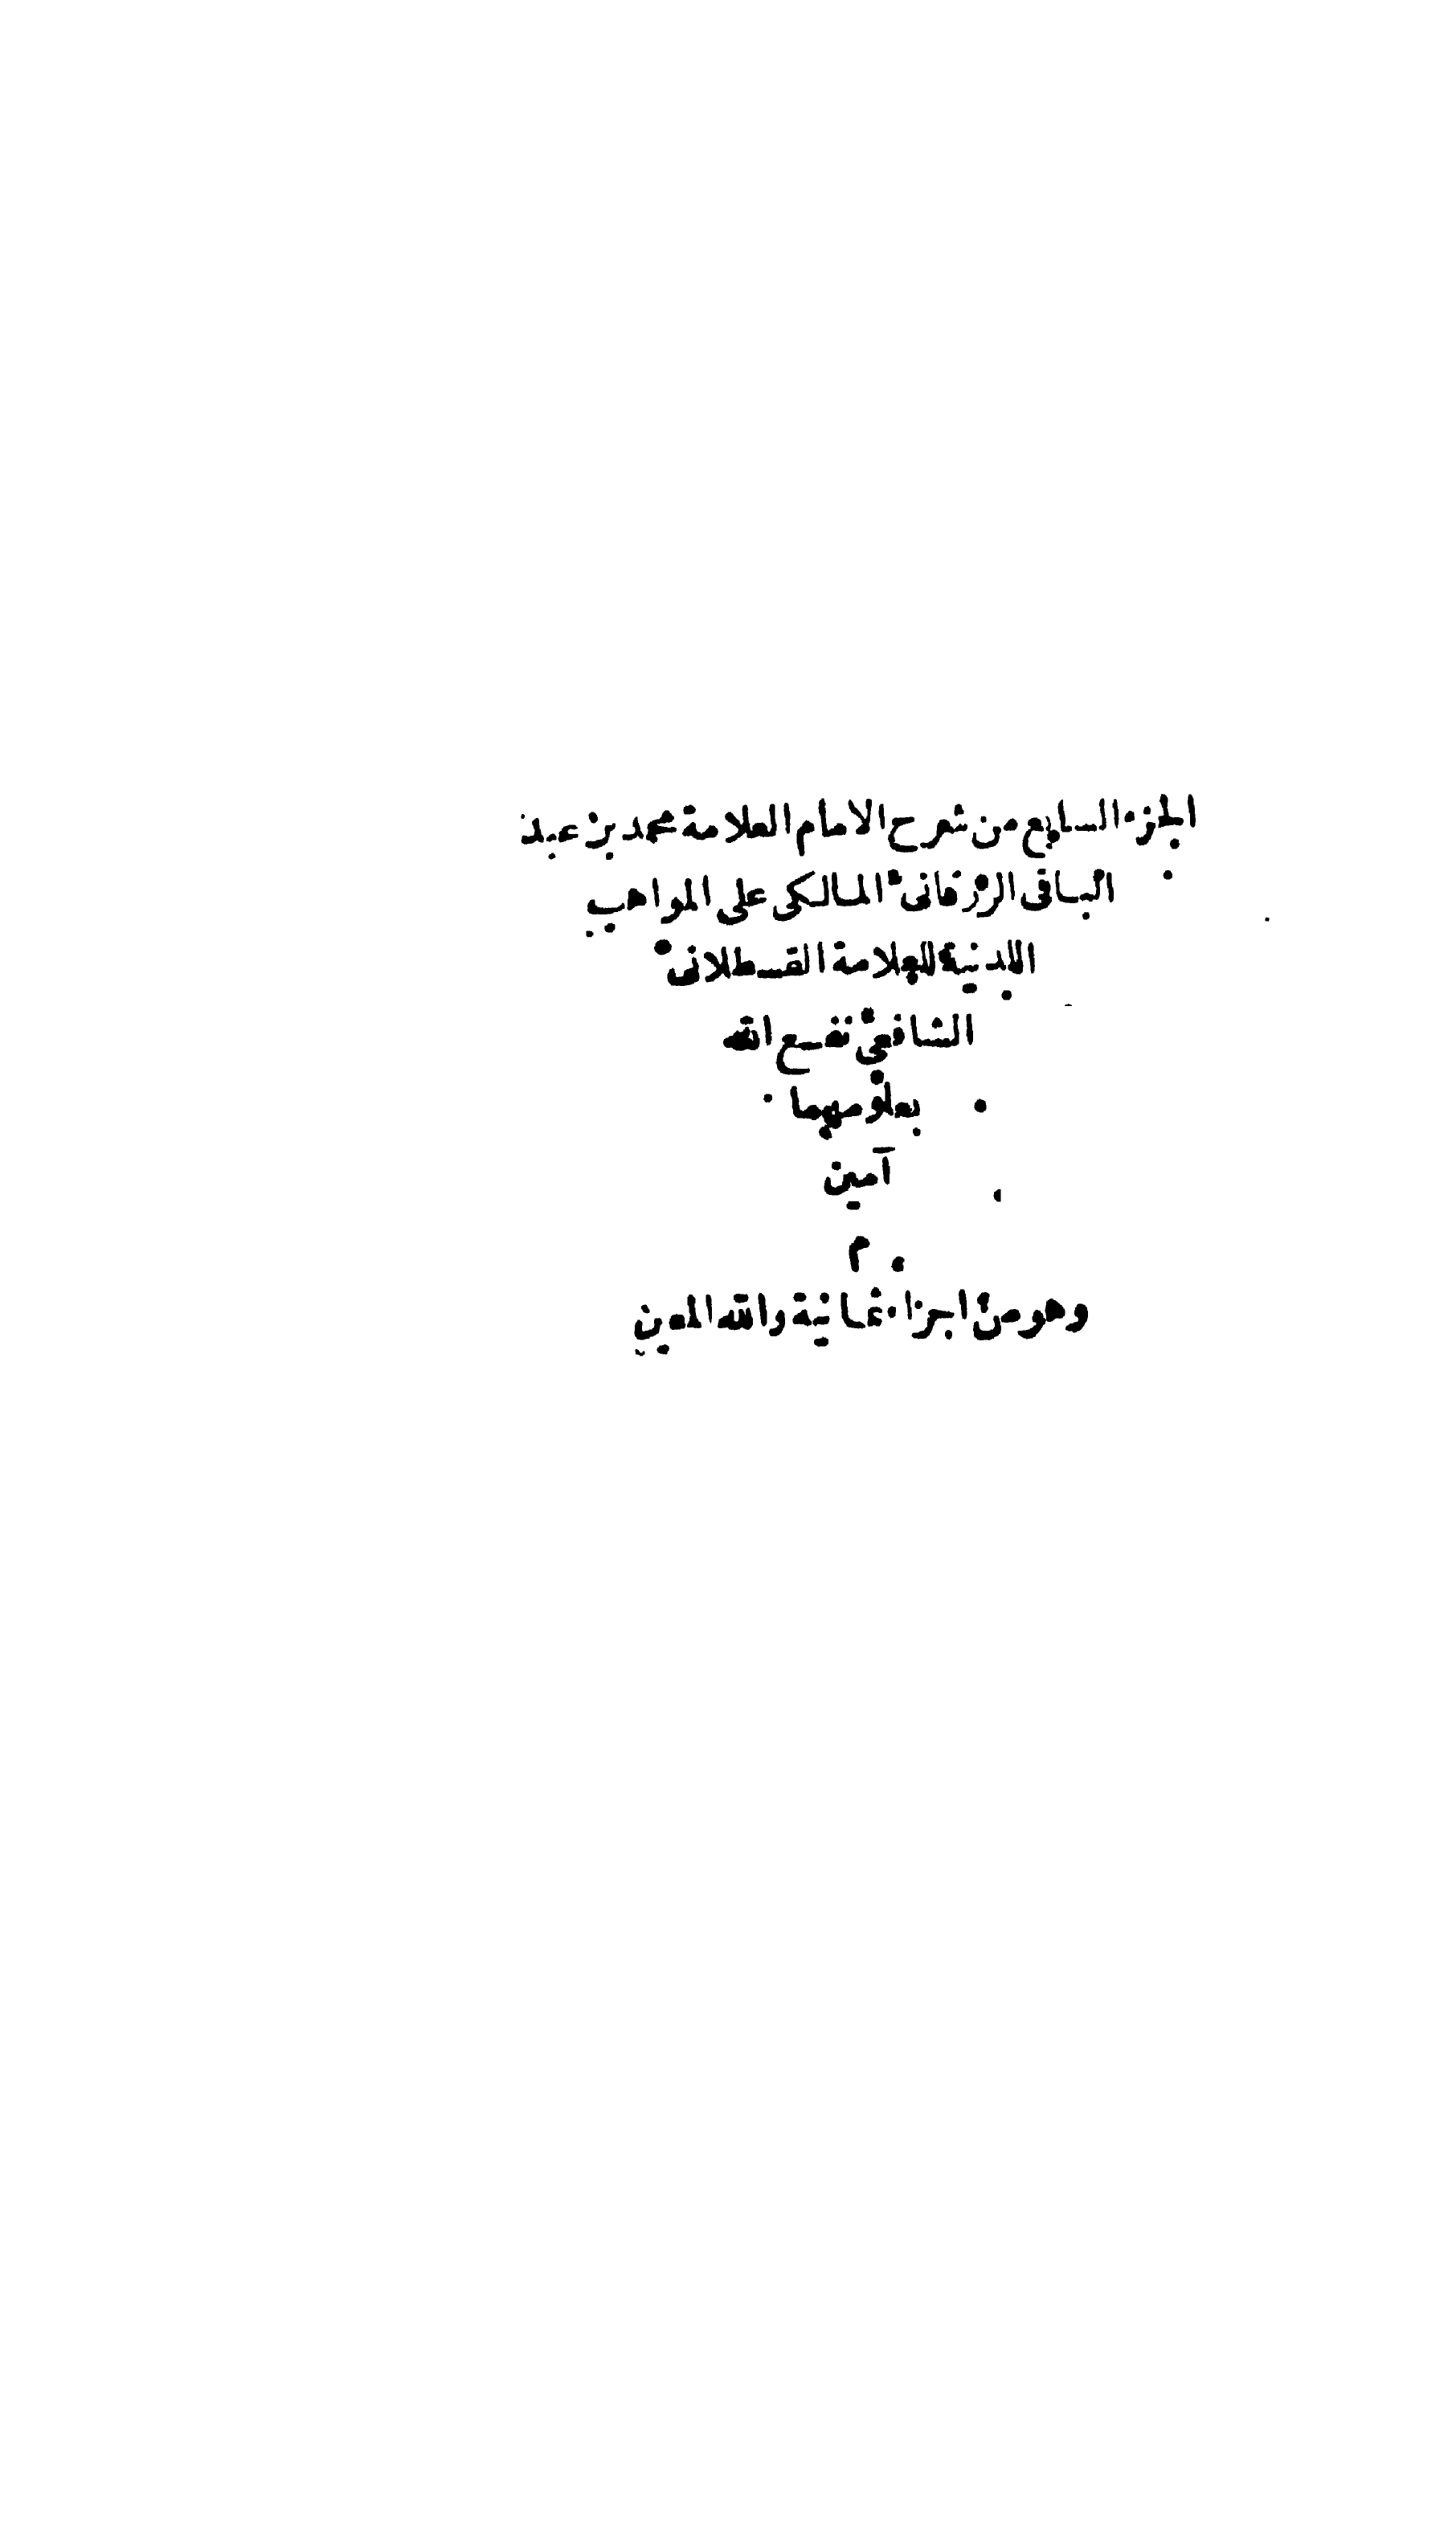 الجزء السابع من شرح الامام العلامة محمد بن عبد
الباقى الزرقانى المالكى على المواهب
اللدنية للعلامة القسطلانى
الشافعى نفع الله
بعلومهما
آمين
م
وهو من اجزاء ثمانية والله المعين